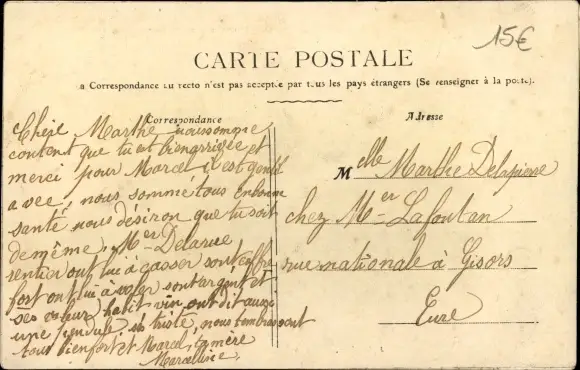 15€
CARTE POSTALE
La Correspondance au recto n'est pas acceptée par tous les pays étrangers (Se renseigner à la poste).
Correspondance
Adresse
Chère Marthe noussomme
content que tu est bienarrivée et
merci pour Marcel il est gentil
avec, nous somme tous enbonne
santé nous désiron que tu soit
demême, Mer Delarue
rentier ont lui à casser son coffre
fort ont lui à voler sont argent et
ses valeur habit vin ont dit aussi
une pendule is triste, nous tembrassont
tous bienfort et Marcel, ta mère
Marcelline,
Melle Marthe Delapierre
chez Mer Lafontan
rue nationale à Gisors
Eure